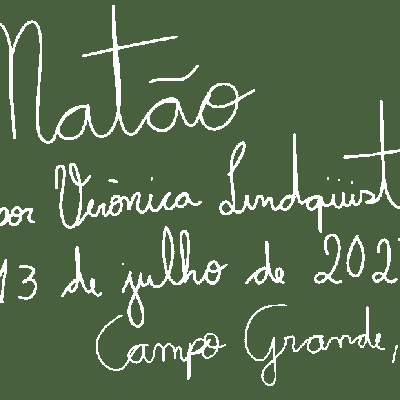 Matão
por Verônica Lindqüist
13 de julho de 202
Campo Grande,